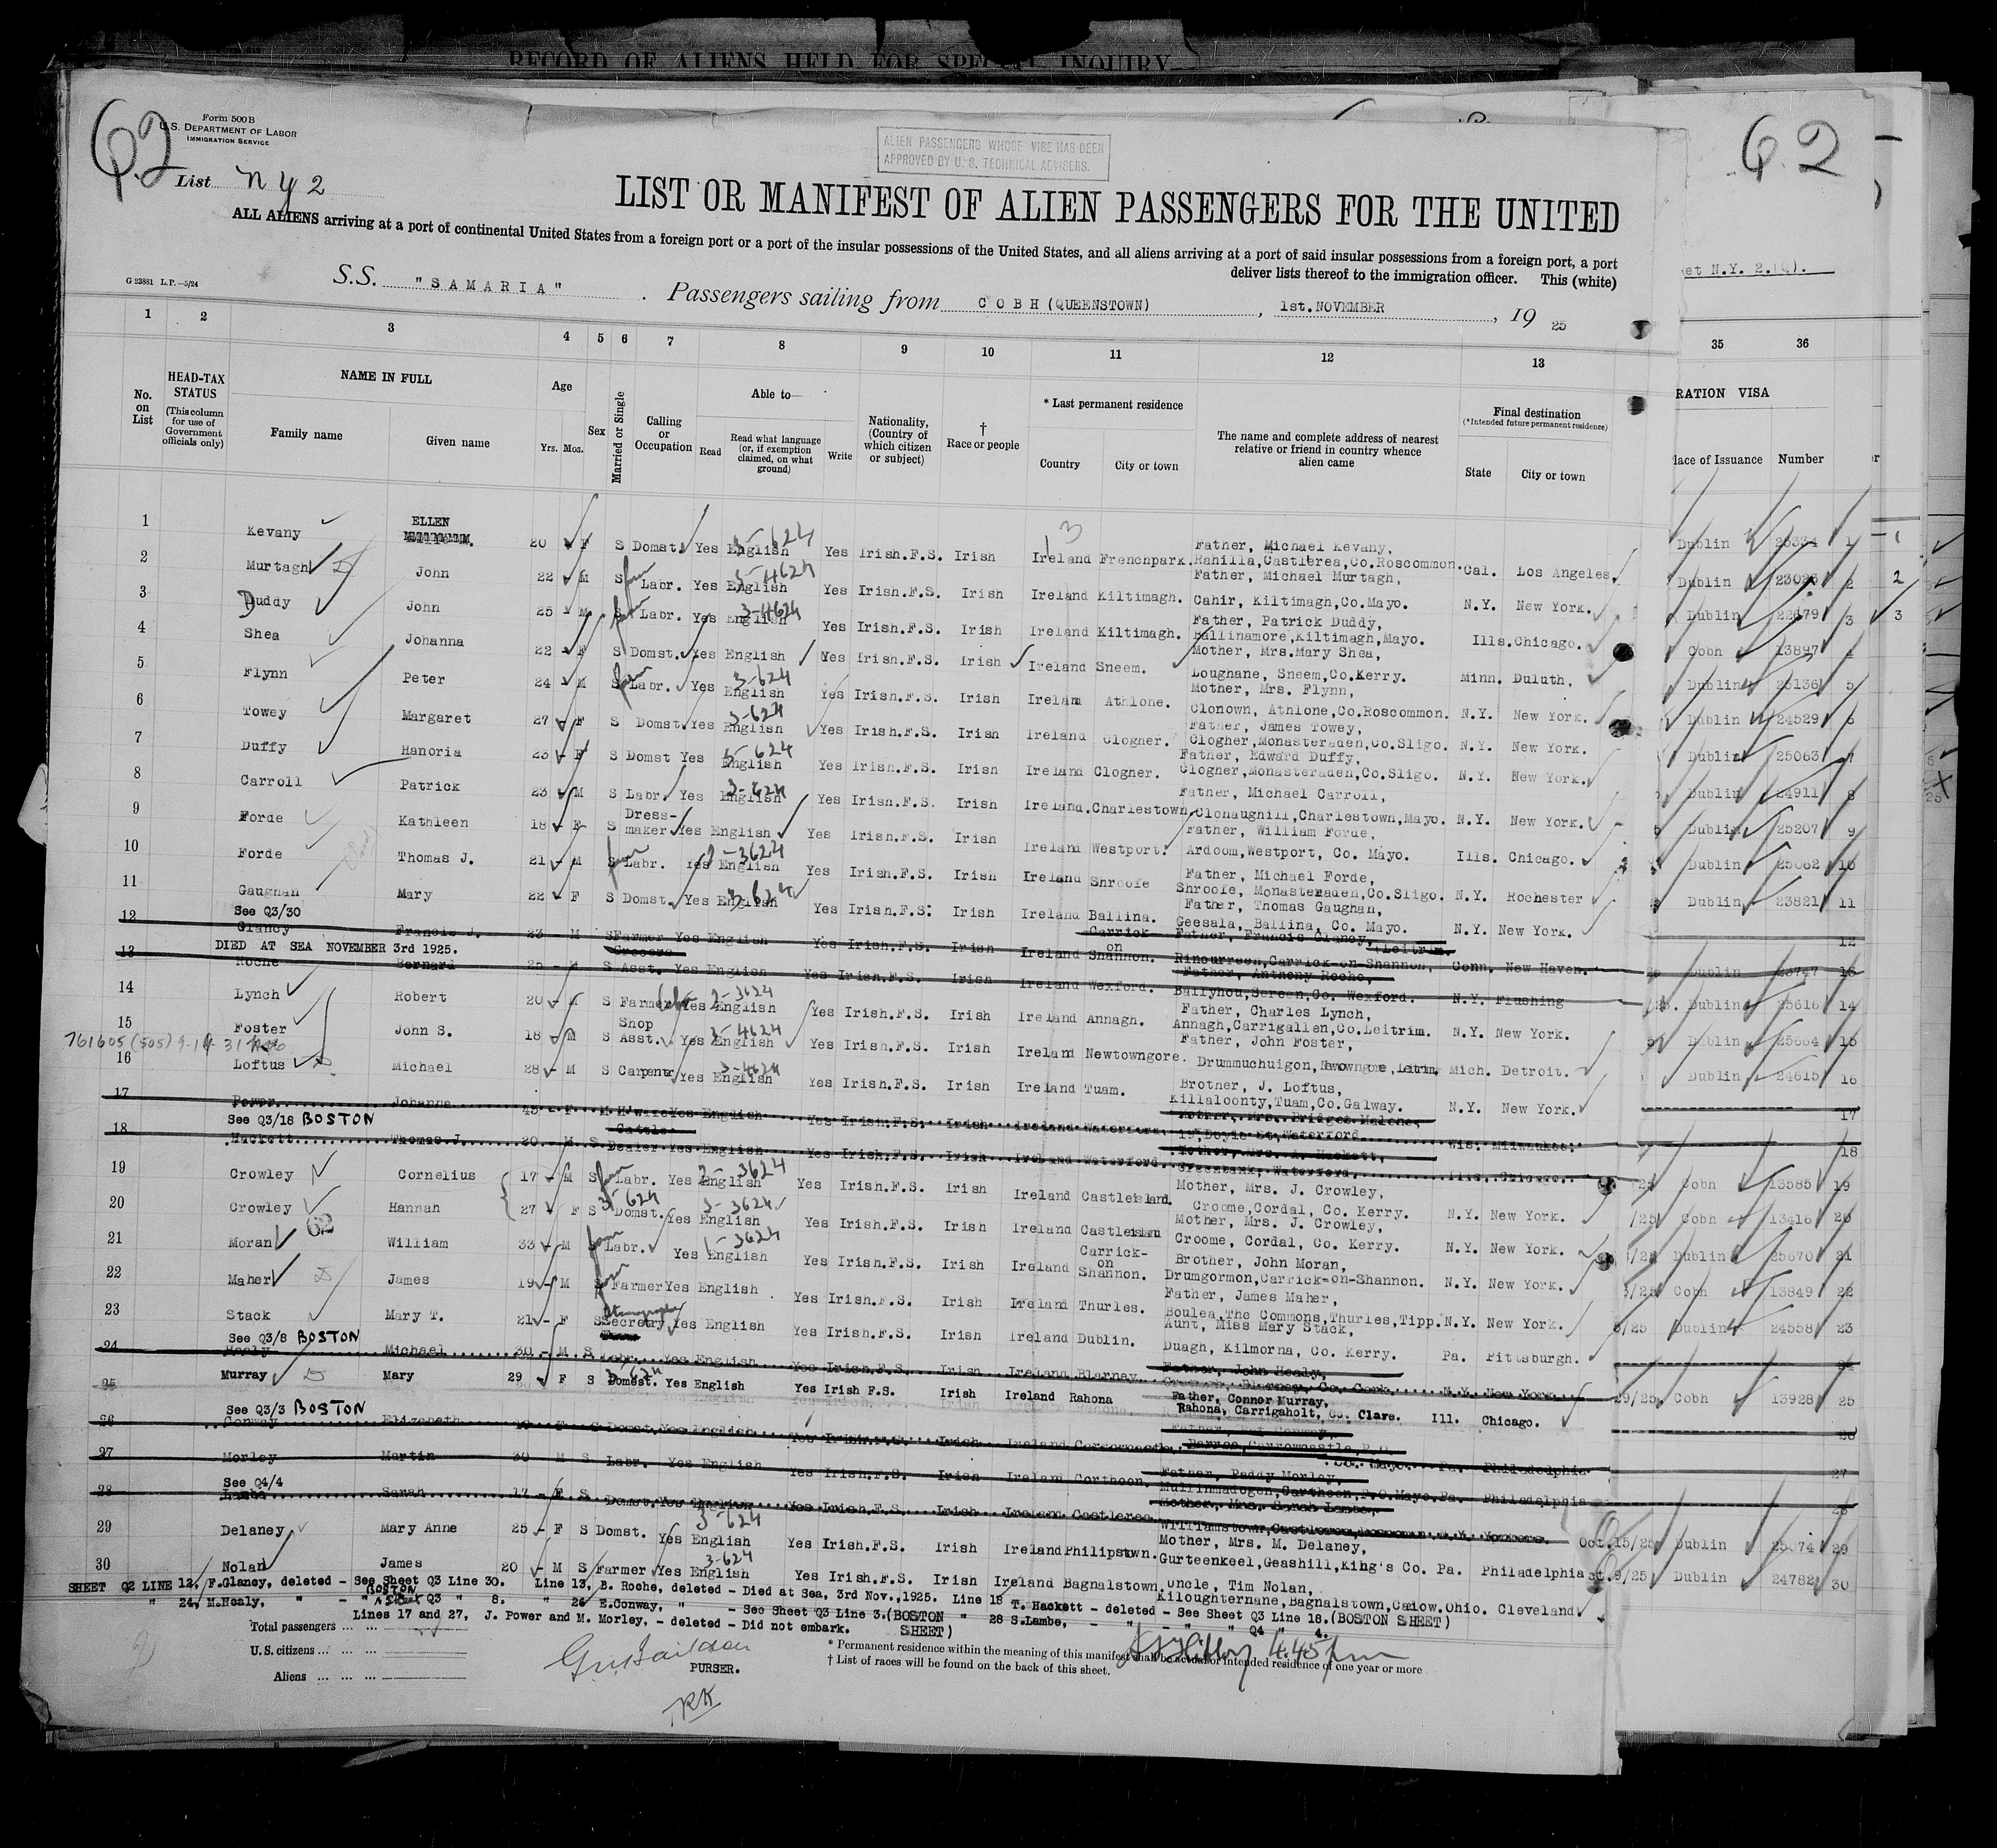 RECORD OF ALIENS HELD FOR SPECIAL INQUIRY
Q2
Form 500B
U.S. DEPARTMENT OF LABOR
IMMIGRATION SERVICE
List NY 2
ALIEN PASSENGERS WHOSE VISE HAS BEEN
APPROVED BY U. S. TECHNICAL ADVISERS.
Q.2
LIST OR MANIFEST OF ALIEN PASSENGERS FOR THE UNITED
ALL ALIENS arriving at a port of continental United States from a foreign port or a port of the insular possessions of the United States, and all aliens arriving at a port of said insular possessions from a foreign port, a port
deliver lists thereof to the immigration officer. This (white)
et N.Y. 2.
G 23881 L.P.—5/24
S.S. "SAMARIA" . Passengers sailing from COBH (QUEENSTOWN) , 1st.NOVEMBER , 19 25
1 2 3 4 5 6 7 8 9 10 11 12 13 35 36
No. on List
HEAD-TAX STATUS (This column for use of Government officials only)
NAME IN FULL
Family name Given name
Age Yrs. Mos.
Sex
Married or Single
Calling or Occupation
Able to—
Read
Read what language (or, if exemption claimed, on what ground)
Write
Nationality, (Country of which citizen or subject)
† Race or people
* Last permanent residence
Country City or town
The name and complete address of nearest relative or friend in country whence alien came
Final destination
(*Intended future permanent residence)
State City or town
RATION VISA
lace of Issuance Number
1 Kevany ELLEN 20 F S Domst. Yes English Yes Irish.F.S. Irish Ireland Frenchpark. Father, Michael Kevany, Rahilla,Castlerea,Co.Roscommon. Cal. Los Angeles. Dublin 1
2 Murtagh John 22 M S Labr. Yes English Yes Irish.F.S. Irish Ireland Kiltimagh. Father, Michael Murtagh, Cahir, Kiltimagh,Co.Mayo. N.Y. New York. Dublin 2
3 Duddy John 25 M S Labr. Yes English Yes Irish.F.S. Irish Ireland Kiltimagh. Father, Patrick Duddy, Ballinamore,Kiltimagh,Mayo. Ills. Chicago. Dublin 3
4 Shea Johanna 22 F S Domst. Yes English Yes Irish.F.S. Irish Ireland Sneem. Mother, Mrs.Mary Shea, Loughane, Sneem,Co.Kerry. Minn. Duluth. Cobh 13897 4
5 Flynn Peter 24 M S Labr. Yes English Yes Irish.F.S. Irish Ireland Athlone. Mother, Mrs. Flynn, Clonown, Athlone,Co.Roscommon. N.Y. New York. Dublin 5
6 Towey Margaret 27 F S Domst. Yes English Yes Irish.F.S. Irish Ireland Clogher. Father, James Towey, Clogher,Monasteraden,Co.Sligo. N.Y. New York. Dublin 24529 6
7 Duffy Hanoria 23 F S Domst Yes English Yes Irish.F.S. Irish Ireland Clogher. Father, Edward Duffy, Clogher,Monasteraden,Co.Sligo. N.Y. New York. Dublin 25063 7
8 Carroll Patrick 23 M S Labr. Yes English Yes Irish.F.S. Irish Ireland. Charlestown, Father, Michael Carroll, Clonaughill,Charlestown,Mayo. N.Y. New York. Dublin 24911 8
9 Forde Kathleen 18 F S Dress-maker Yes English Yes Irish.F.S. Irish Ireland Westport. Father, William Forde, Ardoom,Westport, Co. Mayo. Ills. Chicago. Dublin 25207 9
10 Forde Thomas J. 21 M S Labr. Yes English Yes Irish.F.S. Irish Ireland Shroofe Father, Michael Forde, Shroofe, Monasteraden,Co.Sligo. N.Y. Rochester Dublin 25062 10
11 Gaughan Mary 22 F S Domst. Yes English Yes Irish.F.S. Irish Ireland Ballina. Father, Thomas Gaughan, Geesala, Ballina, Co. Mayo. N.Y. New York. Dublin 23821 11
See Q3/30
12 Glancy Francis J. 23 M S Farmer Yes English Yes Irish.F.S. Irish Ireland Carrick on Shannon. Father, Francis Glancy, Carrick-on-Shannon, Leitrim. Conn. New Haven. 12
DIED AT SEA NOVEMBER 3rd 1925.
13 Roche Bernard 25 M S Grocers Asst. Yes English Yes Irish.F.S. Irish Ireland Wexford. Father, Anthony Roche, Co. Wexford. N.Y. Flushing Dublin
14 Lynch Robert 20 M S Farmer Yes English Yes Irish.F.S. Irish Ireland Annagh. Father, Charles Lynch, Annagh,Carrigallen,Co.Leitrim. N.Y. New York. Dublin 25616 14
15 Foster John S. 18 M S Shop Asst. Yes English Yes Irish.F.S. Irish Ireland Newtowngore. Father, John Foster, Drummuchuigon, Mich. Detroit. Dublin 25604 15
16 Loftus Michael 28 M S Carpentr Yes English Yes Irish.F.S. Irish Ireland Tuam. Brother, J. Loftus, Killaloonty,Tuam,Co.Galway. N.Y. New York. Dublin 24615 16
17 Power Johanna 45 F M H'wife Yes English Yes Irish.F.S. Irish Ireland Waterford. Mother, Mrs. Bridget Malone, 19,Doyle St,Waterford. Wis. Milwaukee. 17
See Q3/18 BOSTON
18 Hackett Thomas J. 20 M S Cattle Dealer Yes English Yes Irish.F.S. Irish Ireland Waterford. Mother, Mrs. A. Hackett, Waterford. Ills. Chicago. 18
19 Crowley Cornelius 17 M S Labr. Yes English Yes Irish.F.S. Irish Ireland Castleisland. Mother, Mrs. J. Crowley, Croome,Cordal, Co. Kerry. N.Y. New York. Cobh 13585 19
20 Crowley Hannah 27 F S Domst. Yes English Yes Irish.F.S. Irish Ireland Castleisland Mother, Mrs. J. Crowley, Croome, Cordal, Co. Kerry. N.Y. New York. Cobh 13416 20
21 Moran William 33 M S Labr. Yes English Yes Irish.F.S. Irish Ireland Carrick-on Shannon. Brother, John Moran, Drumgormon,Carrick-on-Shannon. N.Y. New York. Dublin 25670 21
22 Maher James 19 M S Farmer Yes English Yes Irish.F.S. Irish Ireland Thurles. Father, James Maher, Boulea,The Commons,Thurles,Tipp. N.Y. New York. Cobh 13849 22
23 Stack Mary T. 21 F S Secretry Yes English Yes Irish.F.S. Irish Ireland Dublin. Aunt, Miss Mary Stack, Duagh, Kilmorna, Co. Kerry. Pa. Pittsburgh. Dublin 24558 23
See Q3/8 BOSTON
24 Healy Michael 30 M S Labr. Yes English Yes Irish.F.S. Irish Ireland Blarney. Father, John Healy, Blarney, Co. Cork. N.Y. New York 24
25 Murray Mary 29 F S Domest. Yes English Yes Irish F.S. Irish Ireland Rahona Father, Connor Murray, Rahona, Carrigaholt, Co. Clare. Ill. Chicago. 29/25 Cobh 13928 25
See Q3/3 BOSTON
26 Conway Elizabeth F S Domst. Yes English Yes Irish.F.S. Irish Ireland Carrowcastle. Co. Mayo. Pa. Philadelphia 26
27 Morley Martin 30 M S Labr. Yes English Yes Irish.F.S. Irish Ireland Corthoon. Father, Paddy Morley, Pa. Philadelphia 27
See Q4/4
28 Lambe Sarah 17 F S Domst. Yes English Yes Irish.F.S. Irish Ireland Castlerea. Mother, Mrs. Sarah Lambe, Williamstown,Castlerea,Roscommon. N.Y. Yonkers. 28
29 Delaney Mary Anne 25 F S Domst. Yes English Yes Irish.F.S. Irish Ireland Philipstown. Mother, Mrs. M. Delaney, Gurteenkeel,Geashill,King's Co. Pa. Philadelphia Oct.15/25 Dublin 25674 29
30 Nolan James 20 M S Farmer Yes English Yes Irish.F.S. Irish Ireland Bagnalstown. Uncle, Tim Nolan, Kiloughternane,Bagnalstown,Carlow. Ohio. Cleveland 9/25 Dublin 24782 30
SHEET Q2 LINE 12, F.Glancy, deleted - See Sheet Q3 Line 30. Line 13, B. Roche, deleted - Died at Sea, 3rd Nov.,1925. Line 18 T. Hackett - deleted - See Sheet Q3 Line 18.(BOSTON SHEET)
" 24, M.Healy, " - " BOSTON Q3 " 8. " 26 E.Conway, " - See Sheet Q3 Line 3.(BOSTON SHEET) " 28 S.Lambe, - " - " " Q4 " 4.
Lines 17 and 27, J. Power and M. Morley, - deleted - Did not embark.
Total passengers
U.S. citizens
Aliens
PURSER.
* Permanent residence within the meaning of this manifest shall be actual or intended residence of one year or more
† List of races will be found on the back of this sheet.
4.45 pm